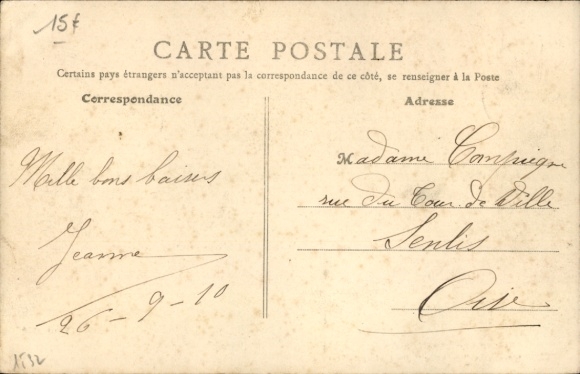 15f
CARTE POSTALE
Certains pays étrangers n'acceptant pas la correspondance de ce côté, se renseigner à la Poste
Correspondance
Adresse
Mille bons baisers
Jeanne
26-9-10
Madame Compiegne
rue du Tour de Ville
Senlis
Oise
1532